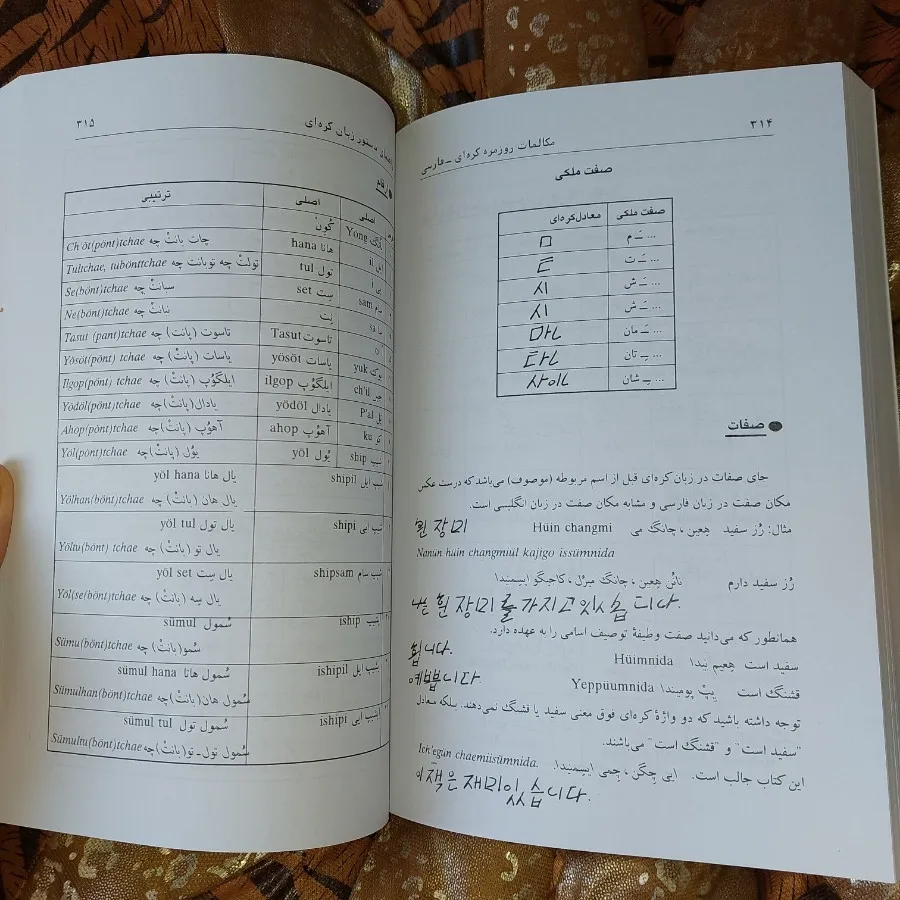 ۳۱۴
مکالمات روزمره کره‌ای – فارسی
صفت ملکی
صفت ملکی معادل کره‌ای
... ـَ م ㅁ
... ـَ ت
... ـَ ش 시
... ـَ ش 시
... ـِ مان 마ㄴ
... ـِ تان 타ㄴ
... ـِ شان 사이ㄴ
● صفات
جای صفات در زبان کره‌ای قبل از اسم مربوطه (موصوف) می‌باشد که درست عکس
مکان صفت در زبان فارسی و مشابه مکان صفت در زبان انگلیسی است.
مثال: رُز سفید هِعین ، چانگ می Hüin changmi 흰 장미
Nanŭn hŭin changmiŭl kajigo issŭmnida
رُز سفید دارم نانْ هِعین ، چانگ میرُل ، کاجیگو ایسیمنیدا
나는 흰 장미를 가지고 있습니다.
همانطور که می‌دانید صفت وظیفهٔ توصیف اسامی را به عهده دارد.
سفید است هِعیم نیدا Hüimnida 흽니다.
قشنگ است یِپْ پومنیدا Yeppüumnida 예쁩니다
توجه داشته باشید که دو واژهٔ کره‌ای فوق معنی سفید یا قشنگ نمی‌دهند. بلکه معادل
"سفید است" و "قشنگ است" می‌باشند.
این کتاب جالب است. ایی چِگن ، چِمی ایسیمنیدا. Ich'egŭn chaemiisŭmnida.
이 책은 재미있습니다.
۳۱۵
دستور زبان کره‌ای
اصلی اصلی ترتیبی
Yong کُونْ
hana هانا Ch'öt(pönt)tchae چات بانتْ چه
tul تول Tultchae, tubönttchae تولتْ چه توبانت چه
sam set سِت Se(bönt)tchae سبانتْ چه
Ne(bönt)tchae نبانتْ چه
Tasut تاسوت Tasut (pant)tchae تاسوت (پانت) چه
yuk یوک yösöt یاسات Yösöt(pönt) tchae یاسات (پانتْ) چه
ch'il ilgop ایلگوپ Ilgop(pönt) tchae ایلگوپ (پانتْ) چه
P'al پل yödöl یادال Yödöl(pönt)tchae یادال(پانتْ) چه
ku کو ahop آهوپ Ahop(pönt)tchae آهوپ (پانتْ) چه
ship شیپ yöl یُول Yöl(pönt)tchae یُول (پانتْ) چه
shipil شیپ ایل yöl hana یال هانا
Yölhan(bönt)tchae یال هان (بانتْ) چه
shipi شیپ ایی yöl tul یال تول
Yöltu(bönt) tchae یال تو (بانتْ) چه
shipsam شیپ سام yöl set یال سِت
Yöl(se(bönt)tchae یال سِه (بانتْ) چه
iship sümul سُمول
Sümu(bönt)tchae سُمو(بانتْ) چه
ishipil sümul hana سُمول هانا
Sümulhan(bönt)tchae سُمول هان(بانتْ) چه
ishipi sümul tul سُمول تول
Sümultu(bönt)tchae سُمول تول-تو(بانتْ) چه